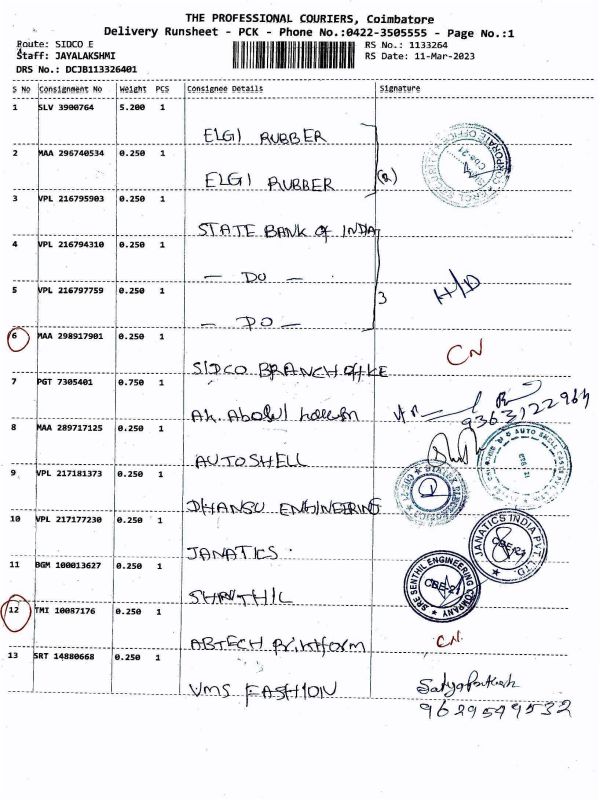 THE PROFESSIONAL COURIERS, Coimbatore
Delivery Runsheet - PCK - Phone No.:0422-3505555 - Page No.:1
Route: SIDCO E
Staff: JAYALAKSHMI
DRS No.: DCJB113326401
RS No.: 1133264
RS Date: 11-Mar-2023
S No Consignment No Weight PCS Consignee Details Signature
1 SLV 3900764 5.200 1
ELGI RUBBER
2 MAA 296740534 0.250 1
ELGI RUBBER
(2)
3 VPL 216795903 0.250 1
STATE BANK of INDIA
4 VPL 216794310 0.250 1
- DO -
5 VPL 216797759 0.250 1
- DO -
3
H/D
6 MAA 298917901 0.250 1
SIDCO BRANCH OFFICE
CN
7 PGT 7305401 0.750 1
AK. Abdul
9363122964
8 MAA 289717125 0.250 1
AUTOSHELL
9 VPL 217181373 0.250 1
DHANSU ENGINEERING
10 VPL 217177230 0.250 1
JANATICS.
JANATICS INDIA PVT LTD
CBE-21
11 BGM 100013627 0.250 1
SHRITHIL
SRE SENTHIL ENGINEERING COMPANY
CBE-21
12 TMI 10087176 0.250 1
ABTECH Printform
CN.
13 SRT 14880668 0.250 1
VMS FASHION
9629549532